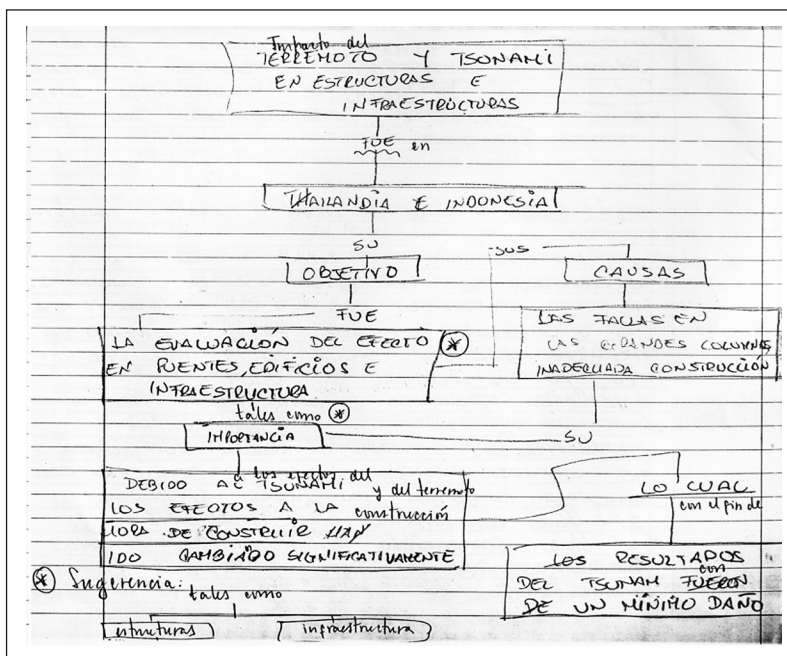 Impacto del
TERREMOTO Y TSUNAMI
EN ESTRUCTURAS E
INFRAESTRUCTURAS
FUE en
THAILANDIA E INDONESIA
SU
OBJETIVO
FUE
LA EVALUACIÓN DEL EFECTO
EN PUENTES, EDIFICIOS E
INFRAESTRUCTURA
SUS
CAUSAS
LAS FALLAS EN
LAS GRANDES COLUMNAS,
INADECUADA CONSTRUCCIÓN
tales como *
IMPORTANCIA
SU
a los efectos del
DEBIDO AL TSUNAMI y del terremoto
LOS EFECTOS A LA construcción
HORA DE CONSTRUIR HAN
IDO CAMBIADO SIGNIFICATIVAMENTE
LO CUAL
con el fin de
LOS RESULTADOS
con
DEL TSUNAM FUERON
DE UN MÍNIMO DAÑO
* Sugerencia:
tales como
estructuras infraestructura